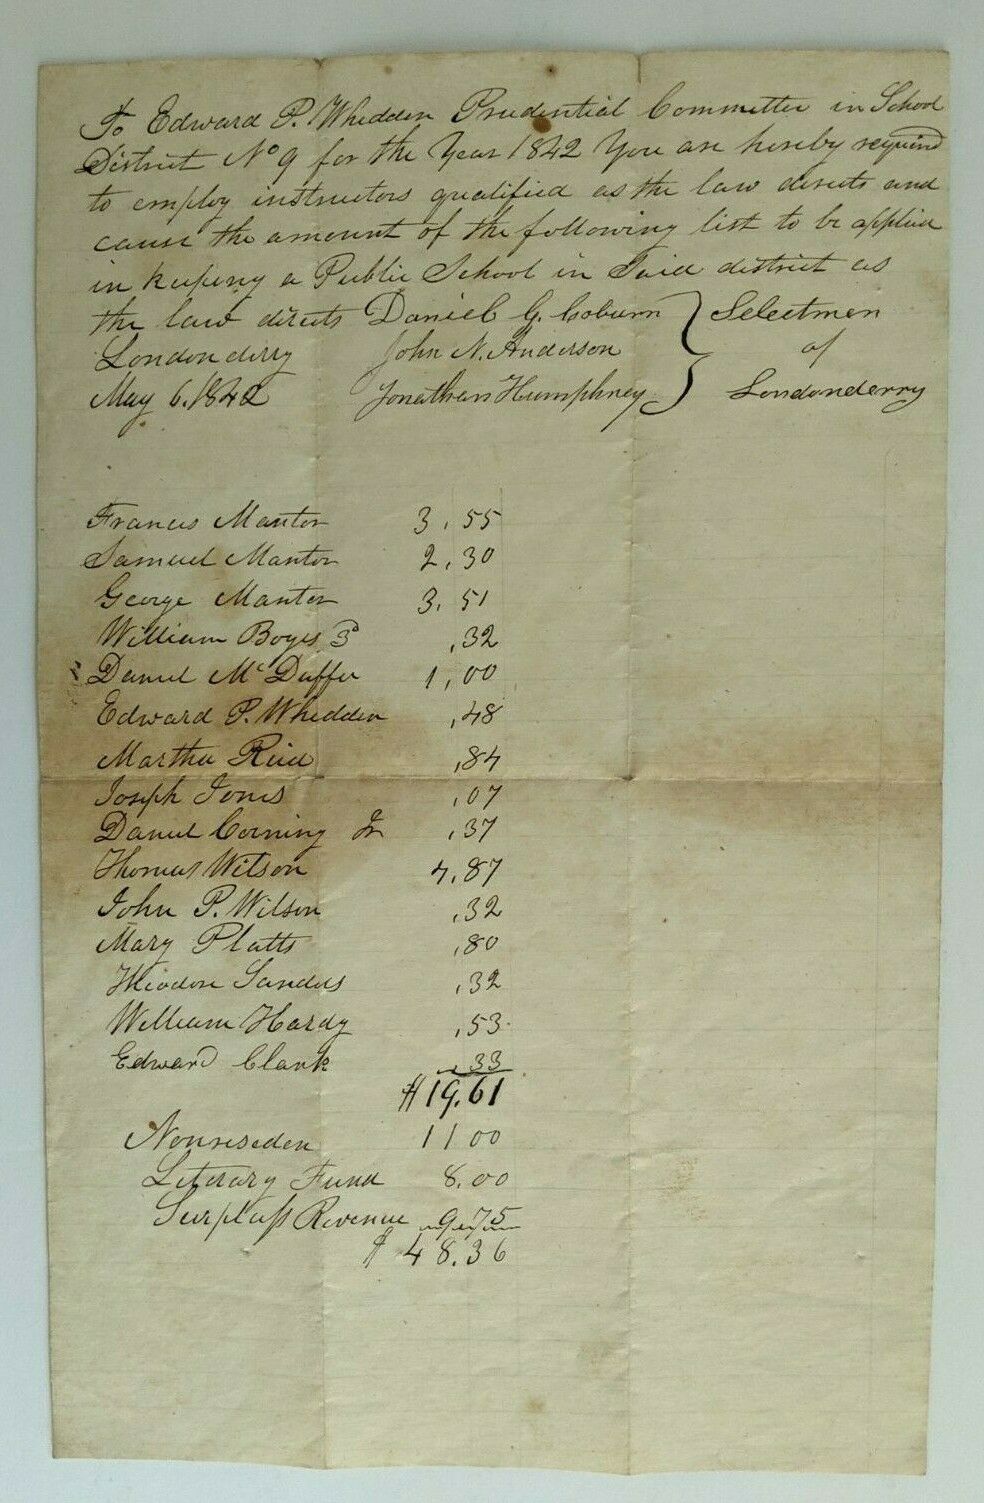 To Edward P. Whedden Prudential Committee in School
District No 9 for the Year 1842 You are hereby required
to employ instructors qualified as the law directs and
cause the amount of the following list to be applied
in keeping a Public School in Said district as
the law directs Daniel G. Coburn Selectmen
Londonderry John N. Anderson of
May 6. 1842 Jonathan Humphrey Londonderry
Francis Manter 3,55
Samuel Manter 2,30
George Manter 3,51
William Boyes 3d ,32
Daniel McDuffee 1,00
Edward P. Whedden ,48
Martha Reid ,84
Joseph Jones ,07
Daniel Corning Jr ,37
Thomas Wilson 4,87
John P. Wilson ,32
Mary Platts ,80
Theodore Sanders ,32
William Hardy ,53
Edward Clark ,33
$19.61
Nonresiden 11 00
Literary Fund 8.00
Surpluss Revenue 9,75
$ 48.36